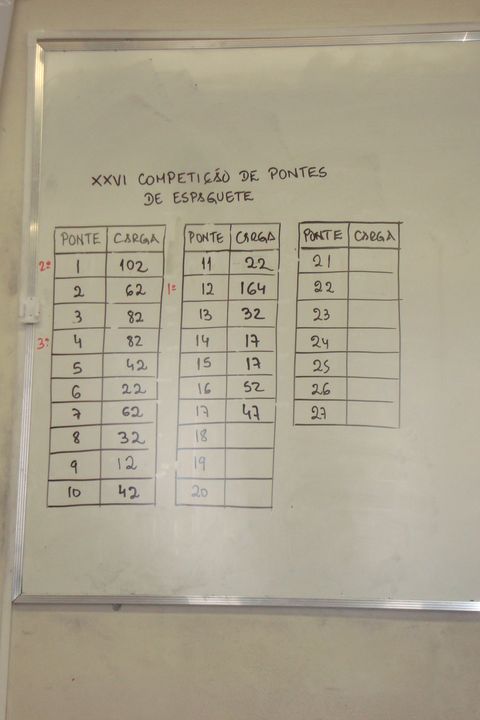 XXVI COMPETIÇÃO DE PONTES
DE ESPAGUETE
PONTE CARGA
2º 1 102
2 62
3 82
3º 4 82
5 42
6 22
7 62
8 32
9 12
10 42
PONTE CARGA
11 22
1º 12 164
13 32
14 17
15 17
16 52
17 47
18
19
20
PONTE CARGA
21
22
23
24
25
26
27